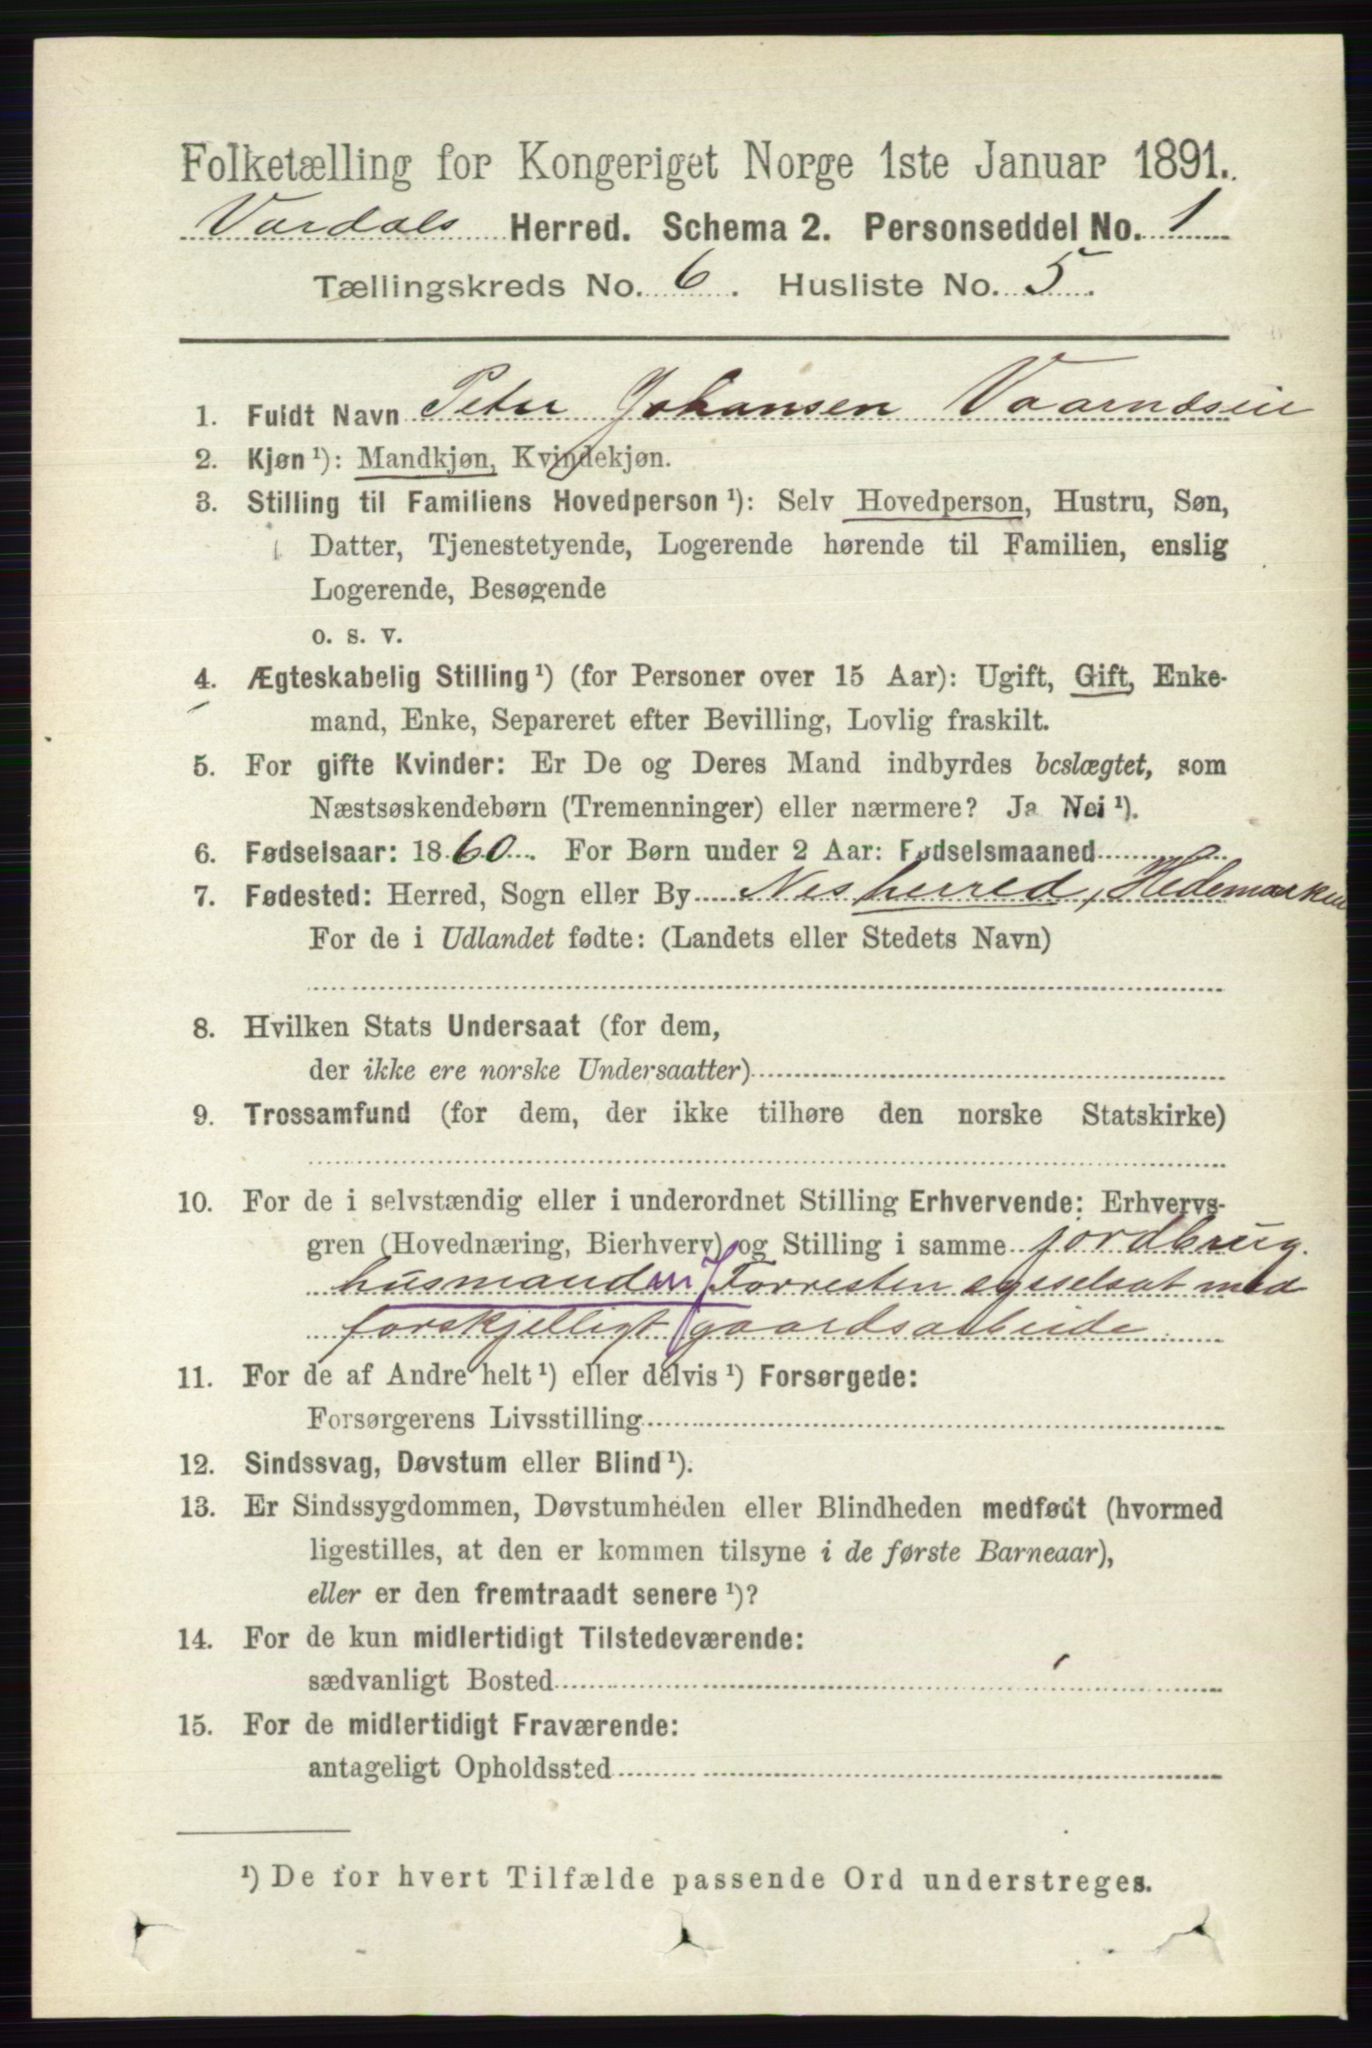 Folketælling for Kongeriget Norge 1ste Januar 1891.
Vardals Herred. Schema 2. Personseddel No. 1
Tællingskreds No. 6. Husliste No. 5.
1. Fuldt Navn Peter Johansen
2. Kjøn¹): Mandkjøn, Kvindekjøn.
3. Stilling til Familiens Hovedperson¹): Selv Hovedperson, Hustru, Søn,
Datter, Tjenestetyende, Logerende hørende til Familien, enslig
Logerende, Besøgende
o. s. v.
4. Ægteskabelig Stilling¹) (for Personer over 15 Aar): Ugift, Gift, Enke-
mand, Enke, Separeret efter Bevilling, Lovlig fraskilt.
5. For gifte Kvinder: Er De og Deres Mand indbyrdes beslægtet, som
Næstsøskendebørn (Tremenninger) eller nærmere? Ja Nei¹).
6. Fødselsaar: 1860. For Børn under 2 Aar: Fødselsmaaned
7. Fødested: Herred, Sogn eller By Nes herred, Hedemarken
For de i Udlandet fødte: (Landets eller Stedets Navn)
8. Hvilken Stats Undersaat (for dem,
der ikke ere norske Undersaatter)
9. Trossamfund (for dem, der ikke tilhøre den norske Statskirke)
10. For de i selvstændig eller i underordnet Stilling Erhvervende: Erhvervs-
gren (Hovednæring, Bierhverv) og Stilling i samme jordbrug.
husmand m J Forresten sysselsat med
forskjelligt gaardsarbeide.
11. For de af Andre helt¹) eller delvis¹) Forsørgede:
Forsørgerens Livsstilling
12. Sindssvag, Døvstum eller Blind¹).
13. Er Sindssygdommen, Døvstumheden eller Blindheden medfødt (hvormed
ligestilles, at den er kommen tilsyne i de første Barneaar),
eller er den fremtraadt senere¹)?
14. For de kun midlertidigt Tilstedeværende:
sædvanligt Bosted
15. For de midlertidigt Fraværende:
antageligt Opholdssted
¹) De for hvert Tilfælde passende Ord understreges.